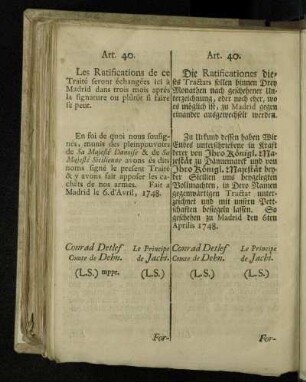 Art. 40.
Les Ratifications de ce
Traité seront échangées ici à
Madrid dans trois mois après
la signature ou plûtôt si faire
se peut.
En foi de quoi nous sousig-
nés, munis des pleinpouvoirs
de Sa Majesté Danoise & de Sa
Majesté Sicilienne avons és dits
noms signé le present Traité
& y avons fait apposer les ca-
chêts de nos armes. Fait a
Madrid le 6. d'Avril, 1748.
Conrad Detlef Le Principe
Comte de Dehn. de Jachi.
(L.S.) mppr. (L.S.)
For-
Art. 40.
Die Ratificationes die-
ses Tractats sollen binnen Drey
Monathen nach geschehener Un-
terzeichnung, oder noch eher, wo
es möglich ist, zu Madrid gegen
einander ausgewechselt werden.
Zu Urkund dessen haben Wir
Endes unterschriebene in Kraft
derer von Ihro Königl. Ma-
jestät zu Dännemarck und von
Ihro Königl. Majestät bey-
der Sicilien uns beygelegten
Vollmachten, in Dero Namen
gegenwärtigen Tractat unter-
zeichnet und mit unsern Pett-
schaften besiegeln lassen. So
geschehen zu Madrid den 6ten
Aprilis 1748.
Conrad Detlef Le Principe
Comte de Dehn. de Jachi.
(L.S.) (L.S.)
For-